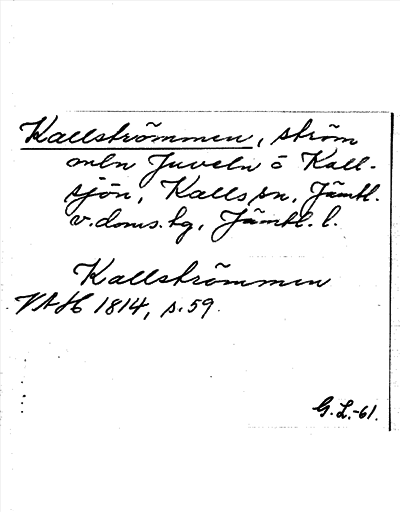 Kallströmmen, ström
mln Juveln o Kall-
sjön, Kalls sn, Jämtl.
v. doms. tg, Jämtl. l.
Kallströmmen
VAH 1814, s. 59.
G. L.-61.